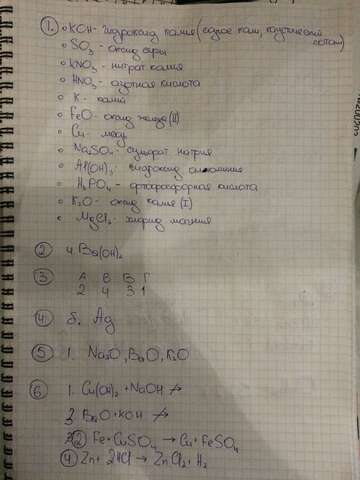 1. KOH - гидроксид калия (едкое кали, каустический
поташ)
SO3 - оксид серы
KNO3 - нитрат калия
HNO3 - азотная кислота
K - калий
FeO - оксид железа (II)
Cu - медь
Na2SO4 - сульфат натрия
Al(OH)3 - гидроксид алюминия
H3PO4 - ортофосфорная кислота
K2O - оксид калия (I)
MgCl2 - хлорид магния
2 4. Ba(OH)2
3 А Б В Г
2 4 3 1
4. б. Ag
5 1. Na2O, BaO, K2O
6 1. Cu(OH)2 + NaOH ↛
3 BaO + KOH ↛
2 Fe + CuSO4 → Cu + FeSO4
4 Zn + 2HCl → ZnCl2 + H2